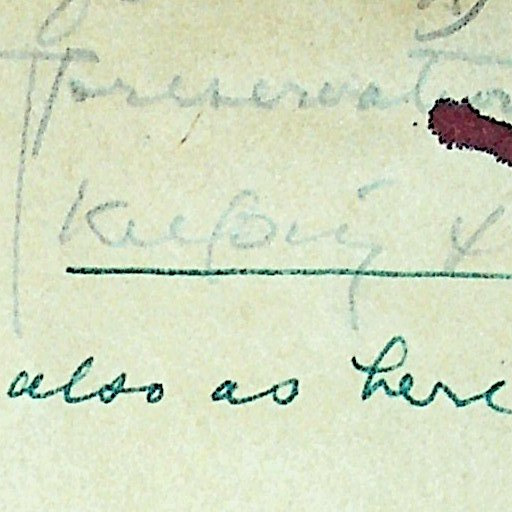 Preservation
Keeping &
also as here